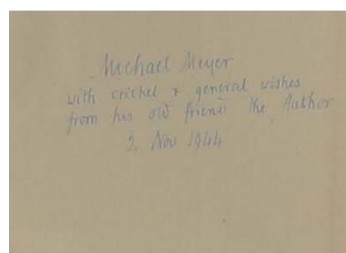 Michael Meyer
with & general wishes
from his old friend the Author
3. Nov 1944